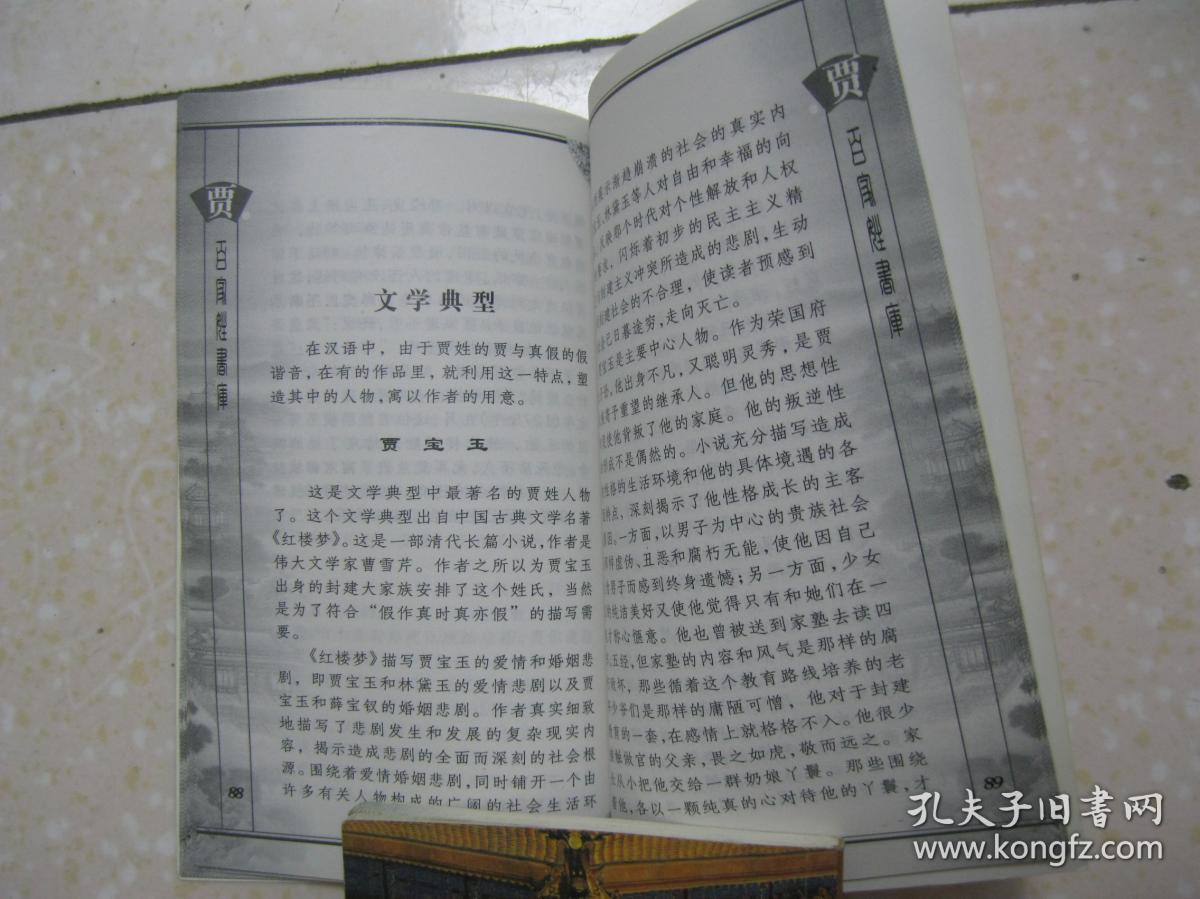 贾
百家姓書庫
文学典型
在汉语中，由于贾姓的贾与真假的假
谐音，在有的作品里，就利用这一特点，塑
造其中的人物，寓以作者的用意。
贾宝玉
这是文学典型中最著名的贾姓人物
了。这个文学典型出自中国古典文学名著
《红楼梦》。这是一部清代长篇小说，作者是
伟大文学家曹雪芹。作者之所以为贾宝玉
出身的封建大家族安排了这个姓氏，当然
是为了符合“假作真时真亦假”的描写需
要。
《红楼梦》描写贾宝玉的爱情和婚姻悲
剧，即贾宝玉和林黛玉的爱情悲剧以及贾
宝玉和薛宝钗的婚姻悲剧。作者真实细致
地描写了悲剧发生和发展的复杂现实内
容，揭示造成悲剧的全面而深刻的社会根
源。围绕着爱情婚姻悲剧，同时铺开一个由
许多有关人物构成的广阔的社会生活环
88
贾
百家姓書庫
示渐趋崩溃的社会的真实内
玉、林黛玉等人对自由和幸福的向
反映那个时代对个性解放和人权
求，闪烁着初步的民主主义精
建主义冲突所造成的悲剧，生动
建社会的不合理，使读者预感到
会已日暮途穷，走向灭亡。
宝玉是主要中心人物。作为荣国府
孙，他出身不凡，又聪明灵秀，是贾
寄予重望的继承人。但他的思想性
促使他背叛了他的家庭。他的叛逆性
点不是偶然的。小说充分描写造成
性格的生活环境和他的具体境遇的各
特点，深刻揭示了他性格成长的主客
因。一方面，以男子为中心的贵族社会
样虚伪、丑恶和腐朽无能，使他因自己
男子而感到终身遗憾；另一方面，少女
纯洁美好又使他觉得只有和她们在一
才称心惬意。他也曾被送到家塾去读四
五经，但家塾的内容和风气是那样的腐
坏，那些循着这个教育路线培养的老
少爷们是那样的庸陋可憎，他对于封建
教育的一套，在感情上就格格不入。他很少
触做官的父亲，畏之如虎，敬而远之。家
从小把他交给一群奶娘丫鬟。那些围绕
着他，各以一颗纯真的心对待他的丫鬟，才
89
孔夫子旧书网
www.kongfz.com